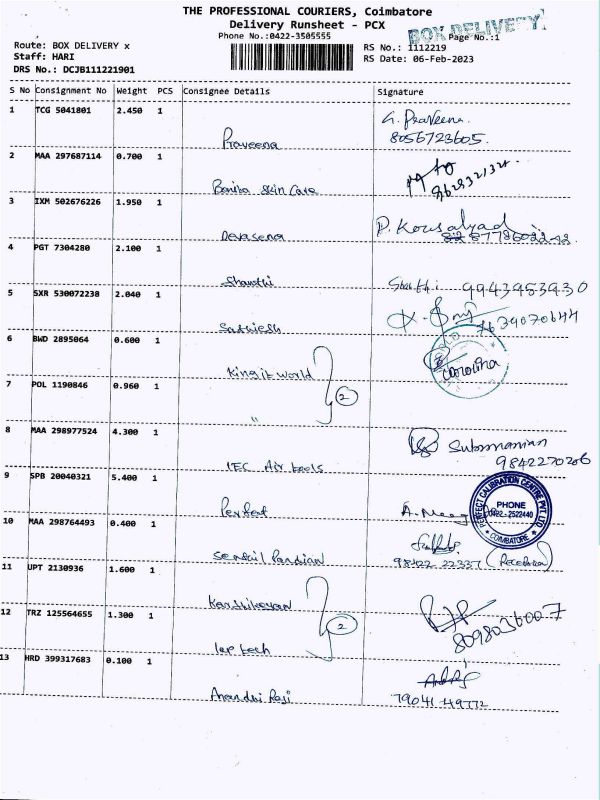 THE PROFESSIONAL COURIERS, Coimbatore
Delivery Runsheet - PCX
BOX DELIVERY
Phone No.:0422-3505555
Page No.:1
Route: BOX DELIVERY x
RS No.: 1112219
Staff: HARI
RS Date: 06-Feb-2023
DRS No.: DCJB111221901
S No Consignment No Weight PCS Consignee Details Signature
1 TCG 5041801 2.450 1
G. Praveena.
8056723605.
Praveena
2 MAA 297687114 0.700 1
Bonita Skin Care
3 IXM 502676226 1.950 1
P. Kousalyad
Devasena
4 PGT 7304280 2.100 1
Shanthi
9943953930
5 SXR 530072238 2.040 1
7639070644
Sathiesh
6 BWD 2895064 0.600 1
Carolina
King it world
2
7 POL 1190846 0.960 1
"
8 MAA 298977524 4.300 1
Subramanian
9842270206
IEC Air tools
9 SPB 20040321 5.400 1
Perfect
PERFECT CALIBRATION CENTRE PVT LTD
PHONE
0422-2522440
COIMBATORE
10 MAA 298764493 0.400 1
Senthil Pandian
98422 22337
11 UPT 2130936 1.600 1
Karthikeyan
2
12 TRZ 125564655 1.300 1
8098036007
Lap tech
13 HRD 399317683 0.100 1
Anandhi Raji
79041 49772